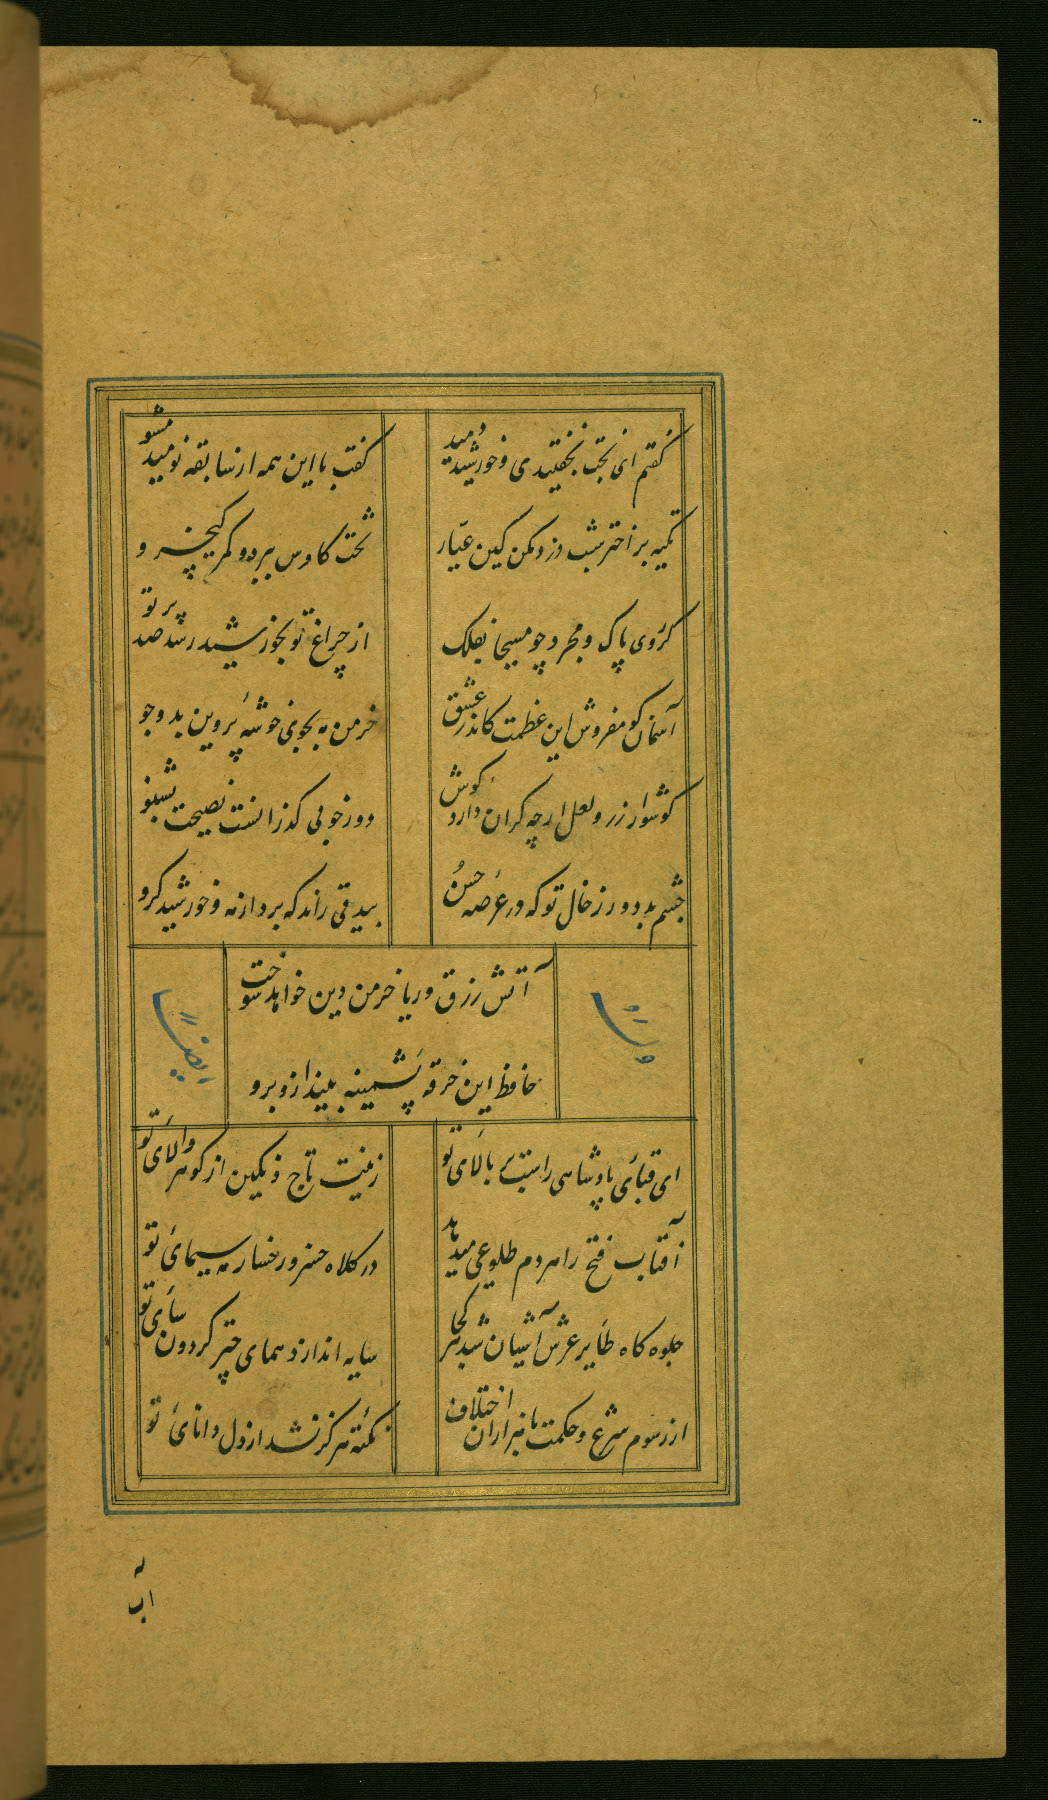 گفتم ای بخت بخفتیدی و خورشید دمید
گفت با این همه از سابقه نومید مشو
تکیه بر اختر شب دزد مکن کین عیار
تخت کاوس ببرد و کمر کیخسرو
گر روی پاک و مجرد چو مسیحا بفلک
از چراغ تو بخورشید رسد صد پرتو
آسمان گو مفروش این عظمت کاندر عشق
خرمن مه بجوی خوشه پروین بدو جو
گوشوار زر و لعل ارچه گران دارد گوش
دور خوبی گذرانست نصیحت بشنو
چشم بد دور ز خال تو که در عرصه حسن
بیدقی راند که برد از مه و خورشید گرو
آتش زرق و ریا خرمن دین خواهد سوخت
حافظ این خرقه پشمینه بیندازو برو
وله
ایضا
ای قبائی پادشاهی راست بر بالای تو
زینت تاج و نگین از گوهر والای تو
آفتاب فتح را هر دم طلوعی میدهد
در کلاه خسرو رخسار مه سیمائ تو
جلوه کاه طایر عرش آشیان شد هر کجا
سایه اندازد همای چتر گردون سای تو
از رسوم شرع و حکمت با هزاران اختلاف
نکته هرگز نشد از دل دانائ تو
اب